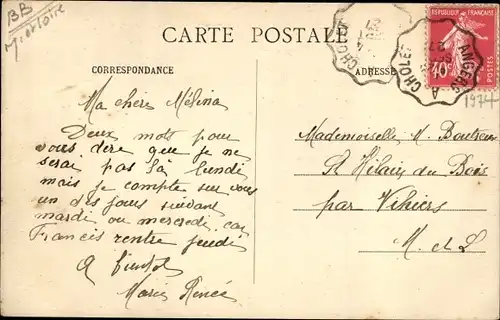 BB
CARTE POSTALE
CORRESPONDANCE
ADRESSE
REPUBLIQUE FRANÇAISE
40c
POSTES
ANGERS A CHOLET
1974
Ma chère Mélina
Deux mots pour
vous dire que je ne
serai pas là lundi
mais je compte sur vous
un des jours suivant
mardi ou mercredi car
Francis rentre jeudi
A bientôt
Marie Renée
Mademoiselle M.
St Hilaire du Bois
par Vihiers
M. et L